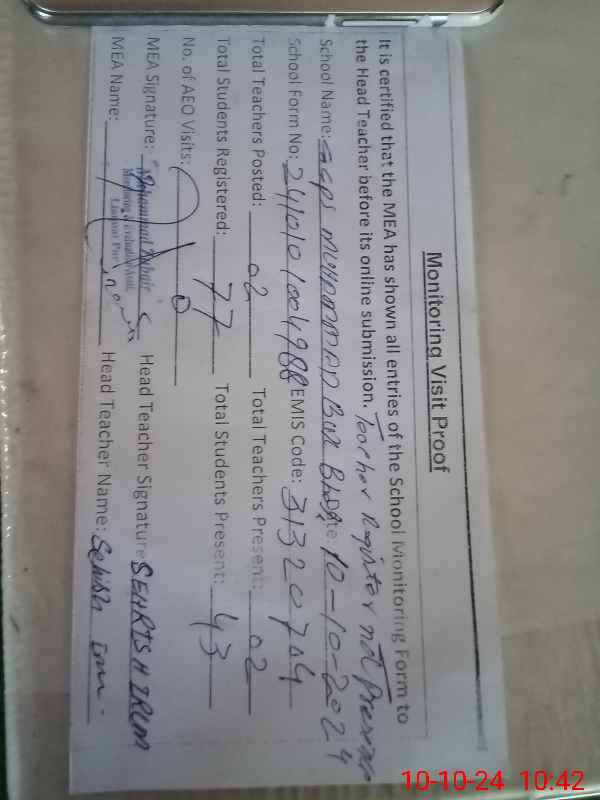 Monitoring Visit Proof
It is certified that the MEA has shown all entries of the School Monitoring Form to
the Head Teacher before its online submission. Teacher Register not Present
School Name: GGPS MUHAMMAD Bux Date: 10-10-2024
School Form No: EMIS Code: 31320704
Total Teachers Posted: 02 Total Teachers Present: 02
Total Students Registered: 77 Total Students Present: 43
No. of AEO Visits: 0
MEA Signature: Head Teacher Signature SEHRISH IRUM
Muhammad Zubair
Monitoring & Evaluation
MEA Name: Head Teacher Name:
10-10-24 10:42